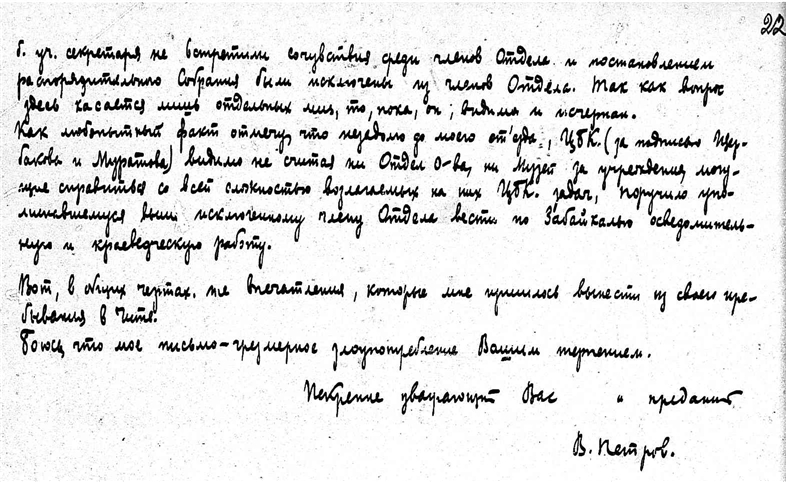 22
б. уч. секретаря не встретили сочувствия среди членов Отдела и постановлением
распорядительного Собрания были исключены из членов Отдела. Так как вопрос
здесь касается лишь отдельных лиц, то, пока, он, видимо и исчерпан.
Как любопытный факт отмечу, что незадолго до моего от'езда, ЦБК. (за подписью Щер-
бакова и Муратова) видимо не считая ни Отдел О-ва, ни Музей за учреждения могу-
щие справиться со всей сложностью возлагаемых на них ЦБК. задач, поручило упо-
минавшемуся выше исключенному члену Отдела вести по Забайкалью осведомитель-
ную и краеведческую работу.
Вот, в общих чертах те впечатления, которые мне пришлось вынести из своего пре-
бывания в Чите.
Боюсь, что мое письмо - чрезмерное злоупотребление Вашим терпением.
Искренне уважающий Вас и преданный
В. Петров.